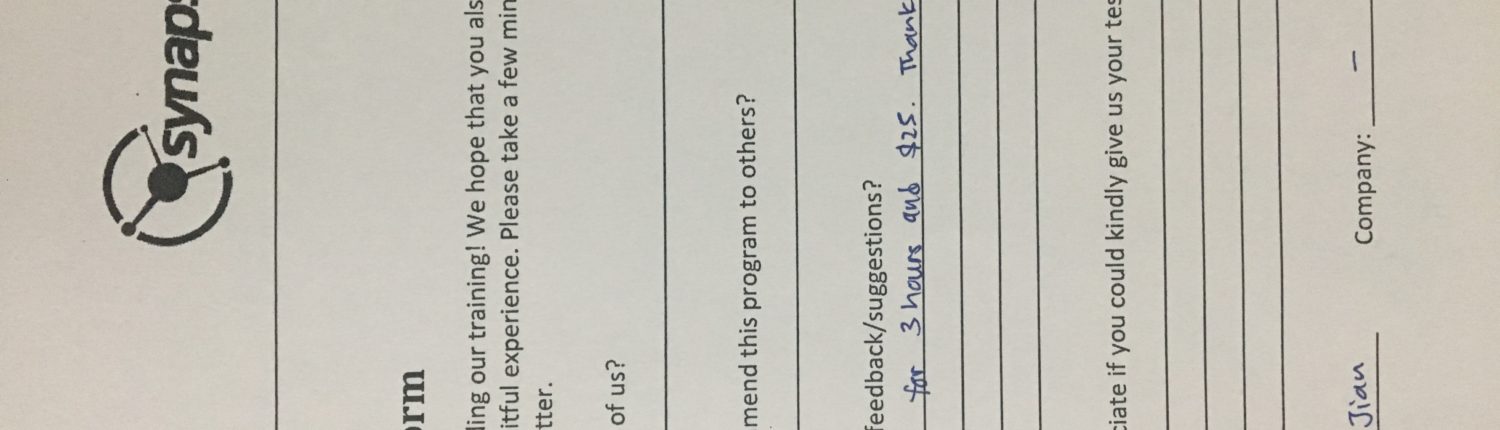 synaps
orm
ling our training! We hope that you als
itful experience. Please take a few min
tter.
of us?
mend this program to others?
feedback/suggestions?
for 3 hours and $25. Thank
ciate if you could kindly give us your tes
Jian Company: –